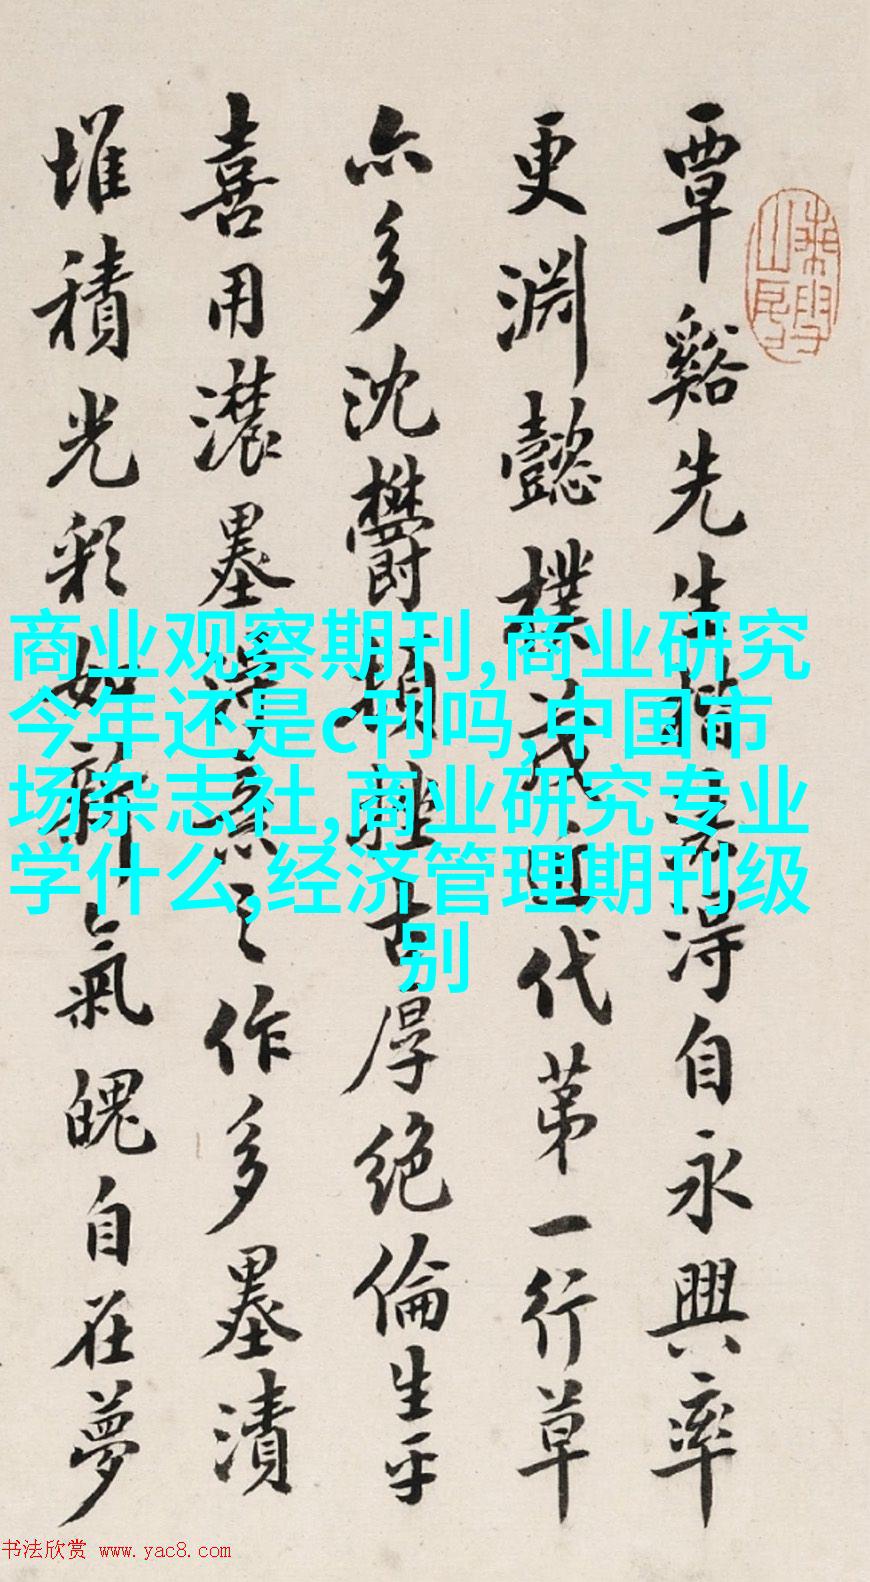 覃谿先生楷
得自永興率
更淵懿樸茂近代第一行草
亦多沈鬱頓挫古厚絶倫生平
喜用濃墨得意之作多墨漬
堆積光彩如新氣魄自在夢
商业观察期刊,商业研究
今年还是c刊吗,中国市
场杂志社,商业研究专业
学什么,经济管理期刊级
别
书法欣赏 www.yac8.com